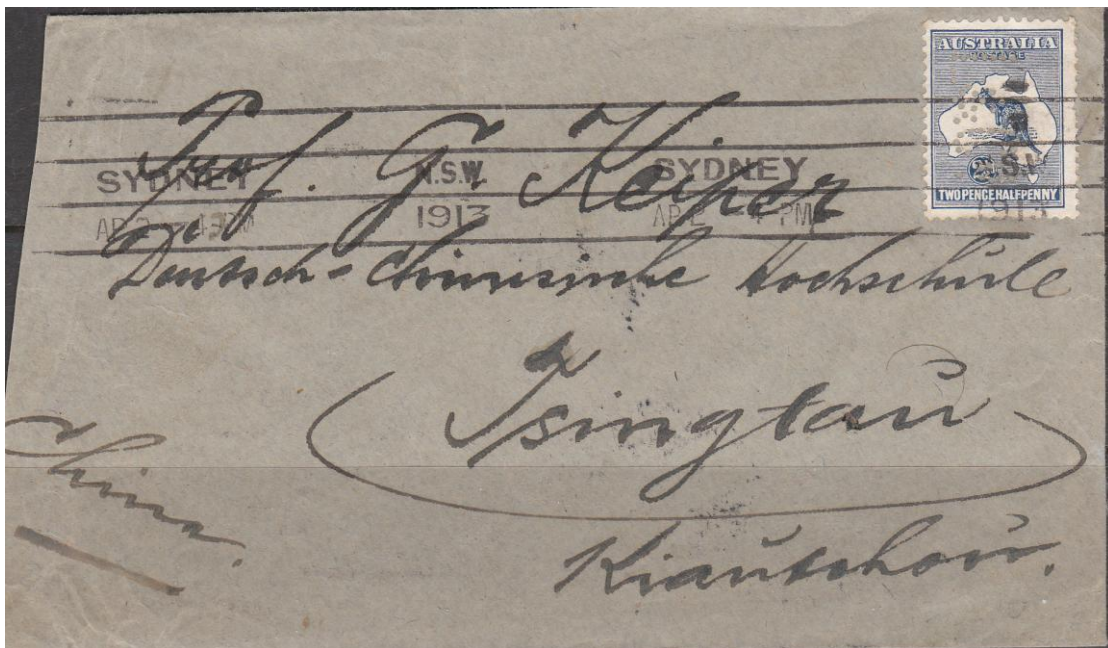 AUSTRALIA
POSTAGE
2½
TWO PENCE HALFPENNY
SYDNEY N.S.W. SYDNEY
1913 AP 2 4 PM 1913
Prof. G. Keiper
Deutsch-Chinesische Hochschule
Tsingtau
China.
Kiautschou.